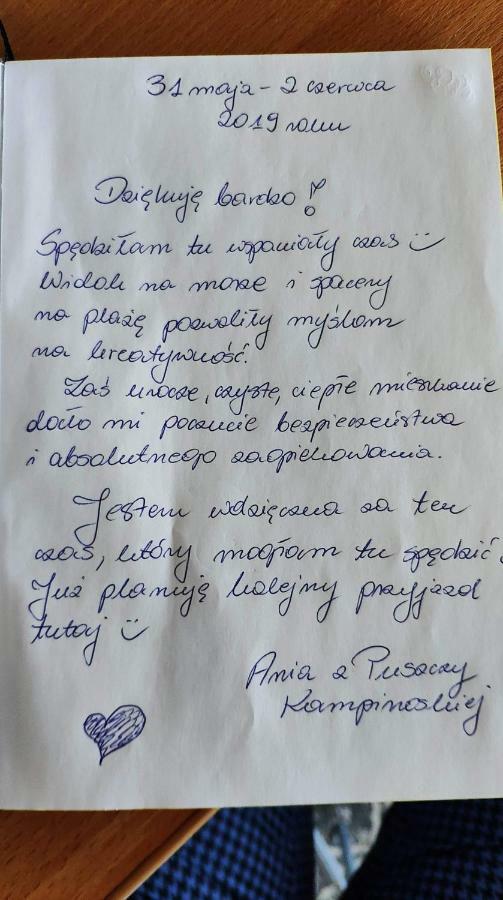 31 maja - 2 czerwca
2019 roku
Dziękuję bardzo!
Spędziłam tu wspaniały czas
Widok na morze i spacery
na plażę pozwoliły myślom
na kreatywność.
Zaś urocze, czyste, ciepłe mieszkanie
dało mi poczucie bezpieczeństwa
i absolutnego zaopiekowania.
Jestem wdzięczna za ten
czas, który mogłam tu spędzić.
Już planuję kolejny przyjazd
tutaj
Ania z Puszczy
Kampinoskiej